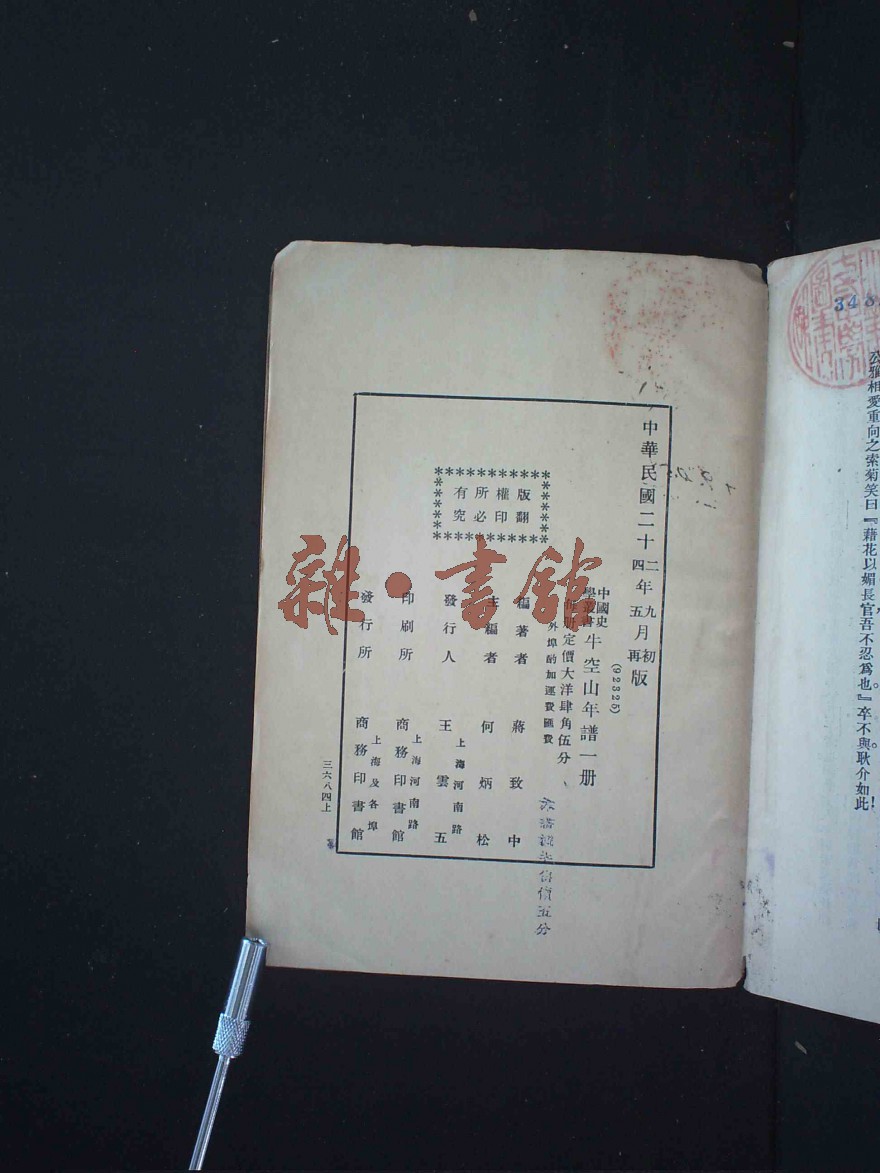 中華民國二十二年九月初版
四年五月再版
(92325)
中國史
學叢書
牛空山年譜一册
每册定價大洋肆角伍分
外埠酌加運費匯費
編著者 蔣致中
主編者 何炳松
上海河南路
發行人 王雲五
上海河南路
印刷所 商務印書館
上海及各埠
發行所 商務印書館
版權所有
翻印必究
三六八四上
雜·書館
公雅相愛重向之索菊笑曰『藉花以媚長官吾不忍爲也。』卒不與耿介如此!